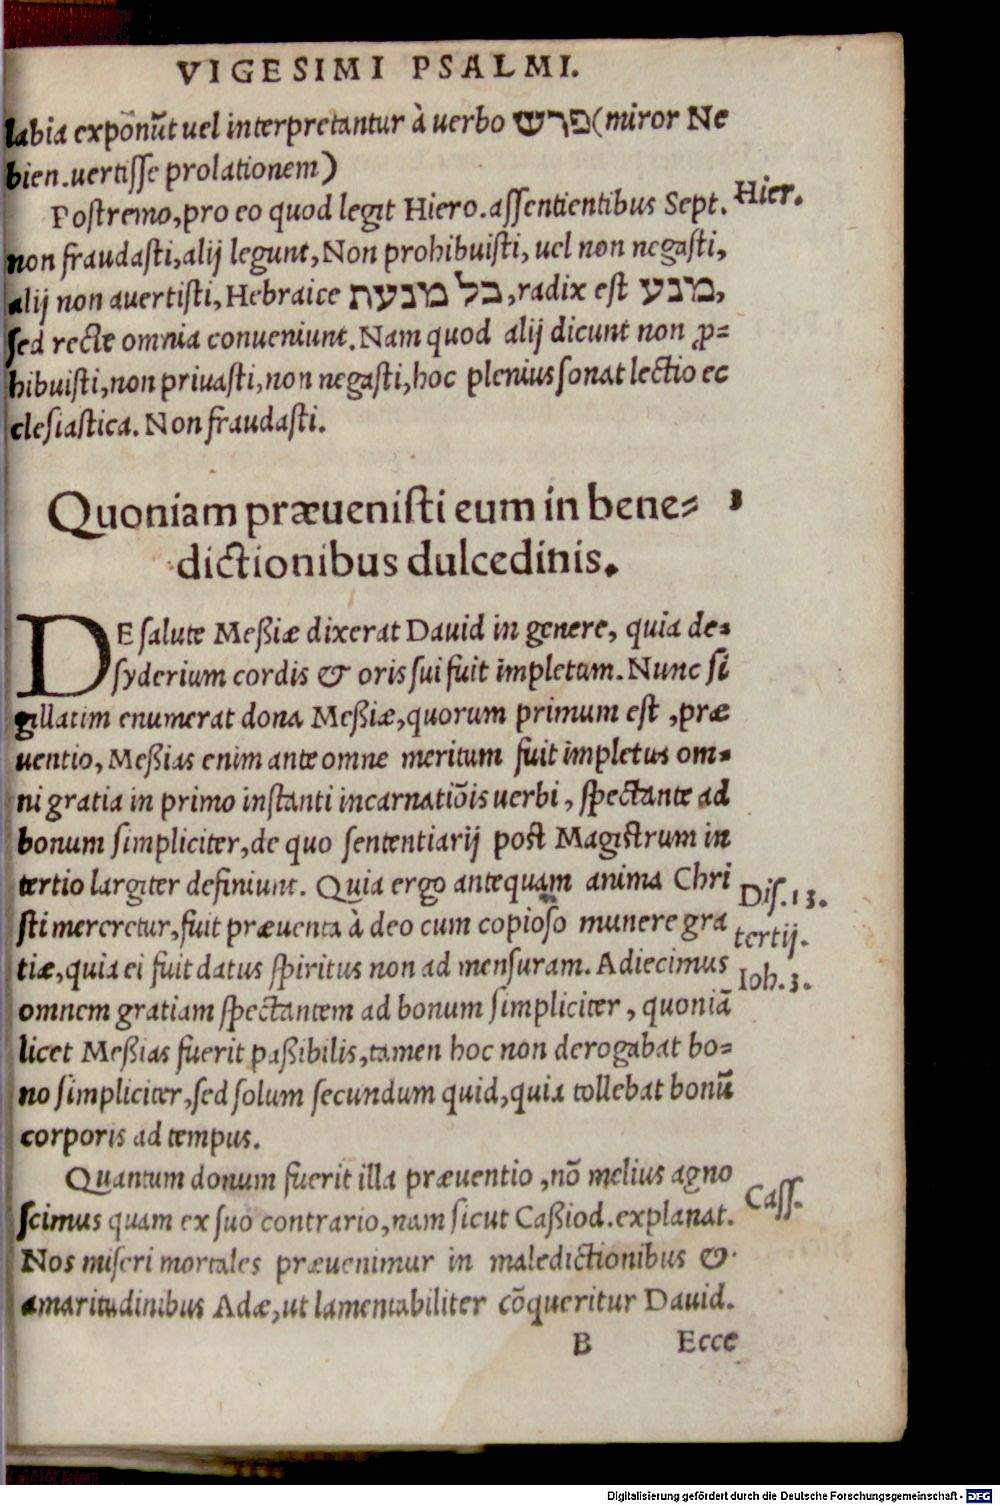 VIGESIMI PSALMI.
labia expõnũt uel interpretantur à uerbo פרש (miror Ne
bien. uertisse prolationem)
Postremo, pro eo quod legit Hiero. assentientibus Sept.
Hier.
non fraudasti, alij legunt, Non prohibuisti, uel non negasti,
alij non auertisti, Hebraice בל מנעת, radix est מנע,
sed recte omnia conueniunt. Nam quod alij dicunt non ꝓ=
hibuisti, non priuasti, non negasti, hoc plenius sonat lectio ec
clesiastica. Non fraudasti.
Quoniam præuenisti eum in bene=
3
dictionibus dulcedinis.
DE salute Meßiæ dixerat Dauid in genere, quia de=
syderium cordis & oris sui fuit impletum. Nunc si
gillatim enumerat dona Meßiæ, quorum primum est, præ
uentio, Meßias enim ante omne meritum fuit impletus om=
ni gratia in primo instanti incarnatiõis uerbi, spectante ad
bonum simpliciter, de quo sententiarij post Magistrum in
tertio largiter definiunt. Quia ergo antequam anima Chri
Dis. 13.
sti mereretur, fuit præuenta à deo cum copioso munere gra
tertij.
tiæ, quia ei fuit datus spiritus non ad mensuram. Adiecimus
Ioh. 3.
omnem gratiam spectantem ad bonum simpliciter, quoniã
licet Meßias fuerit paßibilis, tamen hoc non derogabat bo=
no simpliciter, sed solum secundum quid, quia tollebat bonũ
corporis ad tempus.
Quantum donum fuerit illa præuentio, nõ melius agno
scimus quam ex suo contrario, nam sicut Caßiod. explanat.
Cass.
Nos miseri mortales præuenimur in maledictionibus &
amaritudinibus Adæ, ut lamentabiliter cõqueritur Dauid.
B Ecce
Digitalisierung gefördert durch die Deutsche Forschungsgemeinschaft - DFG